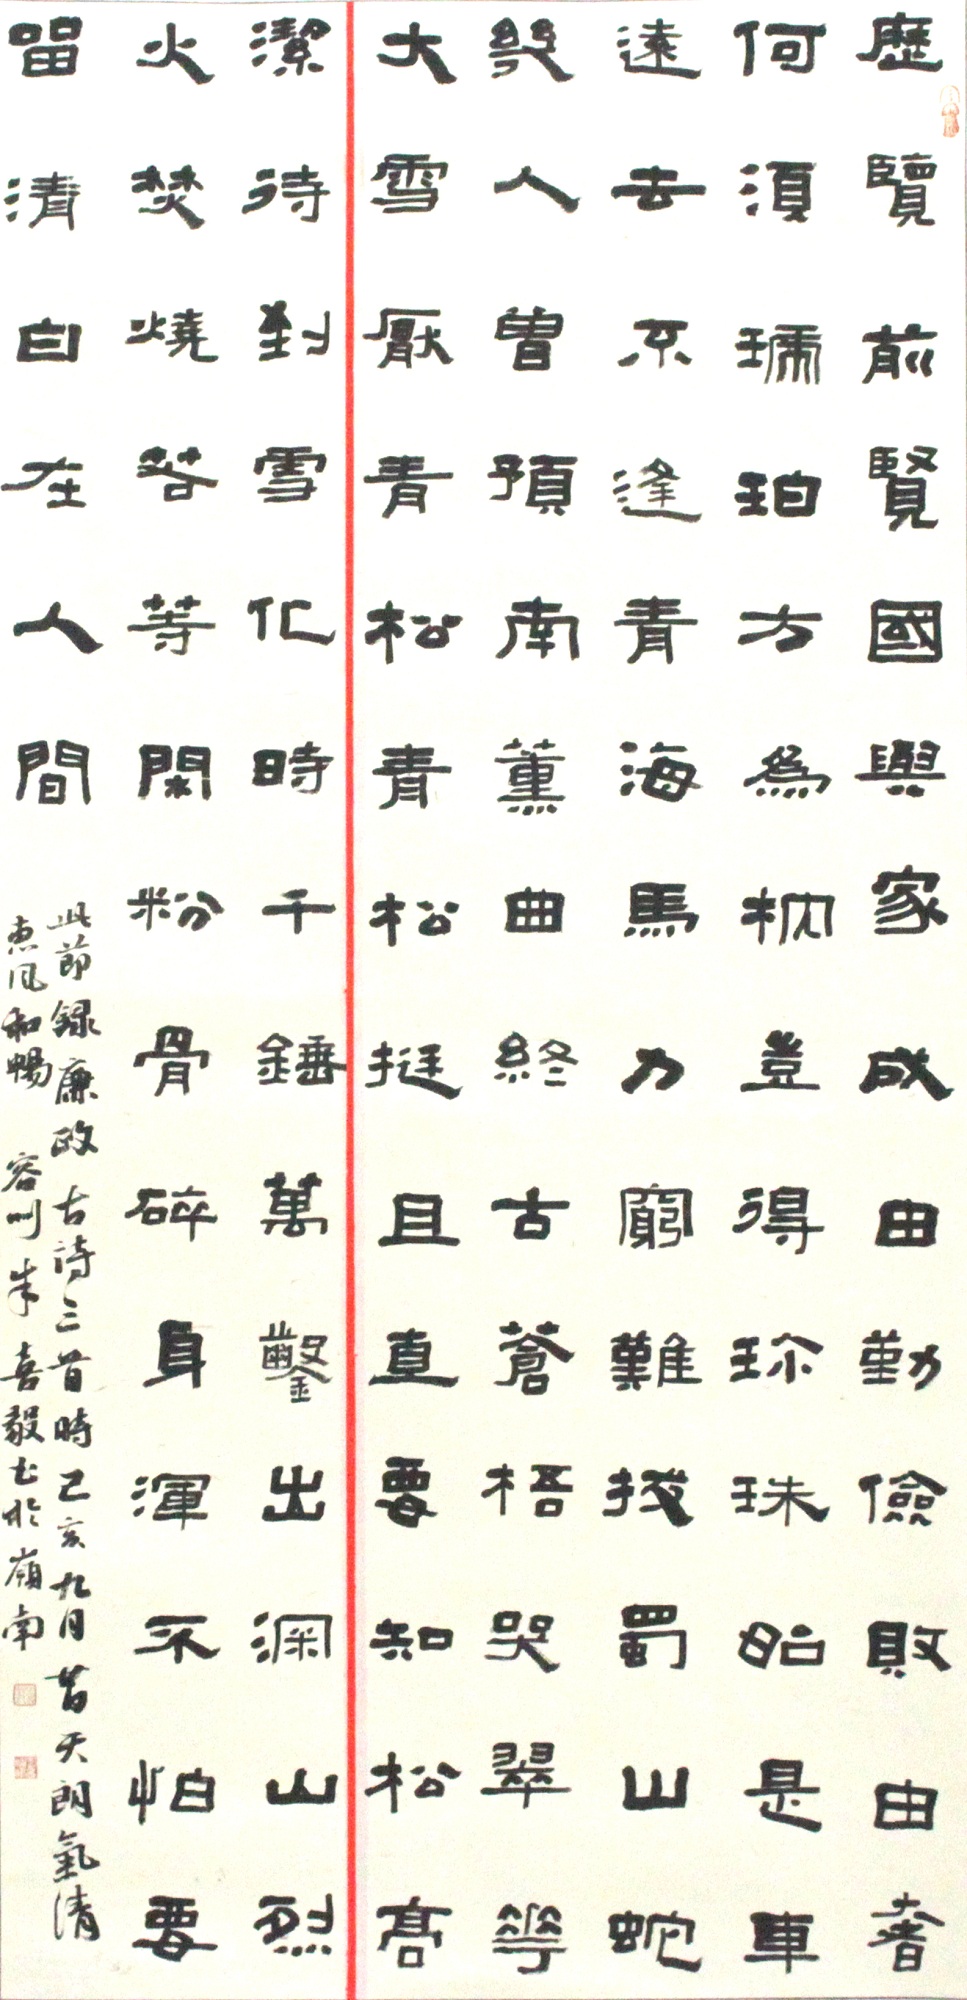 歷覽前賢國與家成由勤儉敗由奢
何須琥珀方為枕豈得珎珠始是車
遠去不逢青海馬力窮難拔蜀山蛇
幾人曾預南薰曲終古蒼梧哭翠華
大雪厭青松青松挺且直要知松高
潔待到雪化時千錘萬鑿出深山烈
火焚燒若等閑粉骨碎身渾不怕要
留清白在人間
此節録廉政古詩三首時己亥九月天朗氣清
惠風和暢 容川朱喜毅書於嶺南